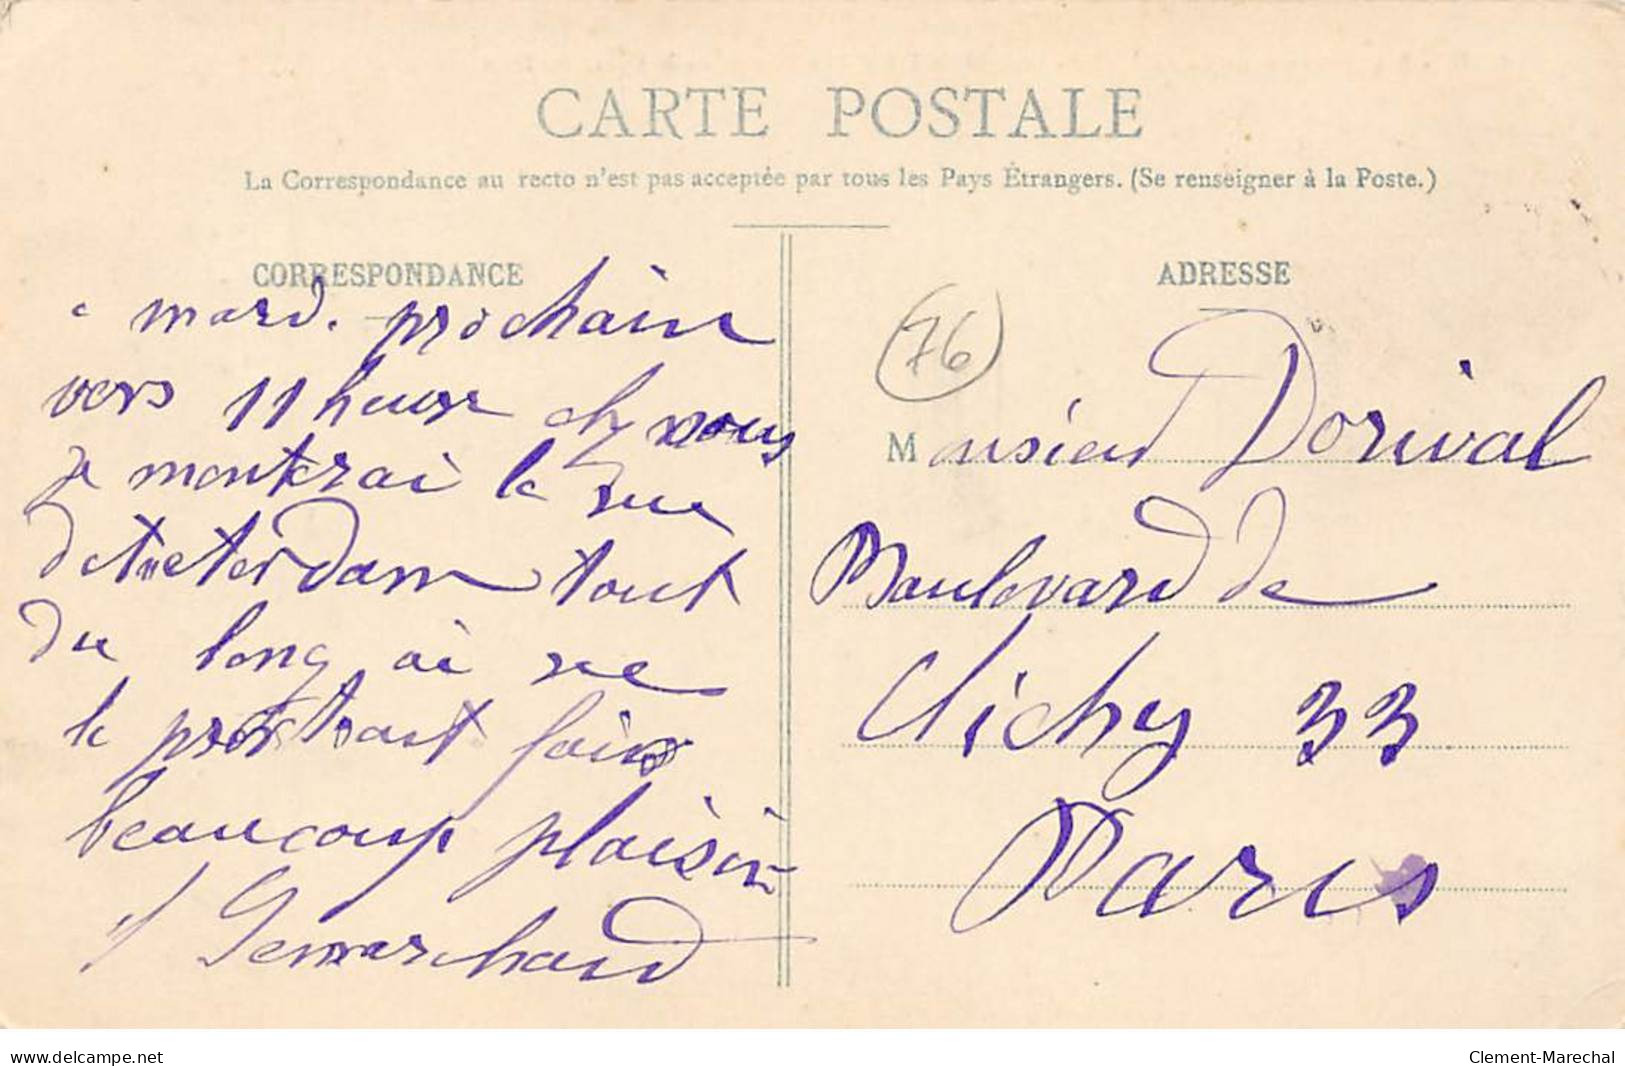 CARTE POSTALE
La Correspondance au recto n'est pas acceptée par tous les Pays Étrangers. (Se renseigner à la Poste.)
CORRESPONDANCE
mardi prochain
vers 11 heur ch vous
je monterai la rue
tout
du long ai
le portrait fair
beaucoup plaisir
ADRESSE
76
Monsieur Dorival
Boulevard de
Clichy 33
Paris
delcampe.net
Clement-Marechal